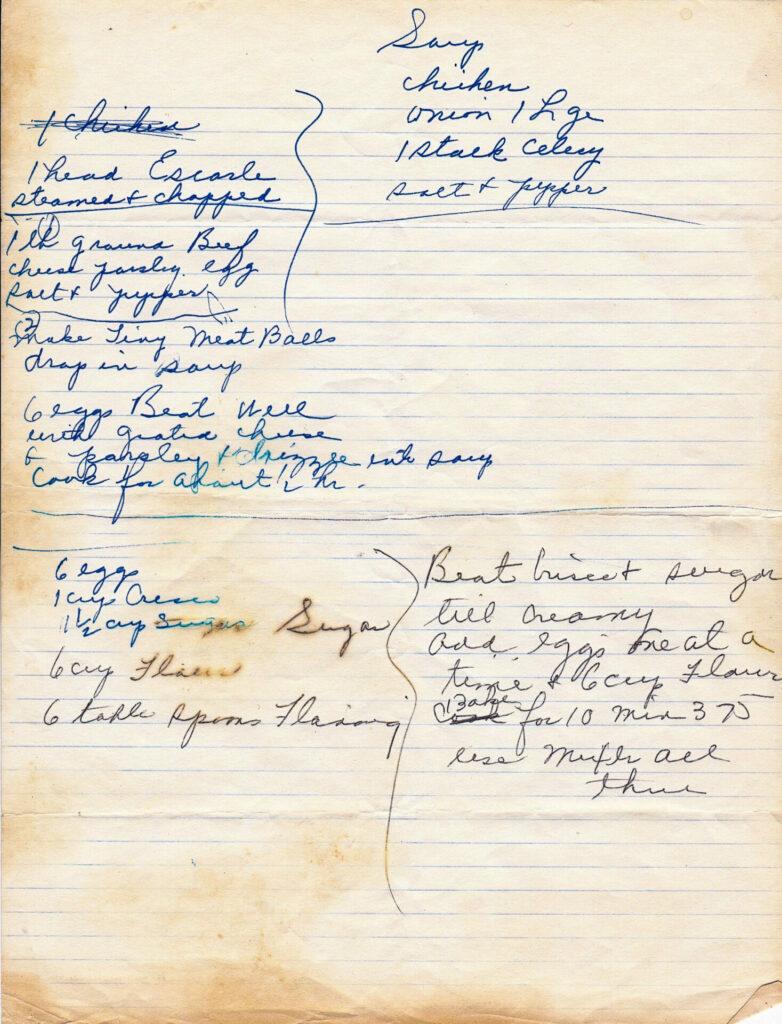 Soup
chicken
onion 1 Lge
1 stalk Celery
salt & pepper
1 Chicken
1 head Escarle
steamed & chopped
(1)
1 lb ground Beef
cheese parsley egg
salt & pepper
(2)
Make Tiny Meat Balls
drop in soup
6 eggs Beat Well
with grated cheese
& parsley & drizzle into soup
Cook for about 1/2 hr.
6 eggs
1 cup Cresco
1 1/2 cup Sugar Sugar
6 cup Flour
6 table spoons Flavoring
Beat Crisco & sugar
till creamy
add eggs one at a
time & 6 cup Flour
Bake for 10 min 375
use Mixer all
thru